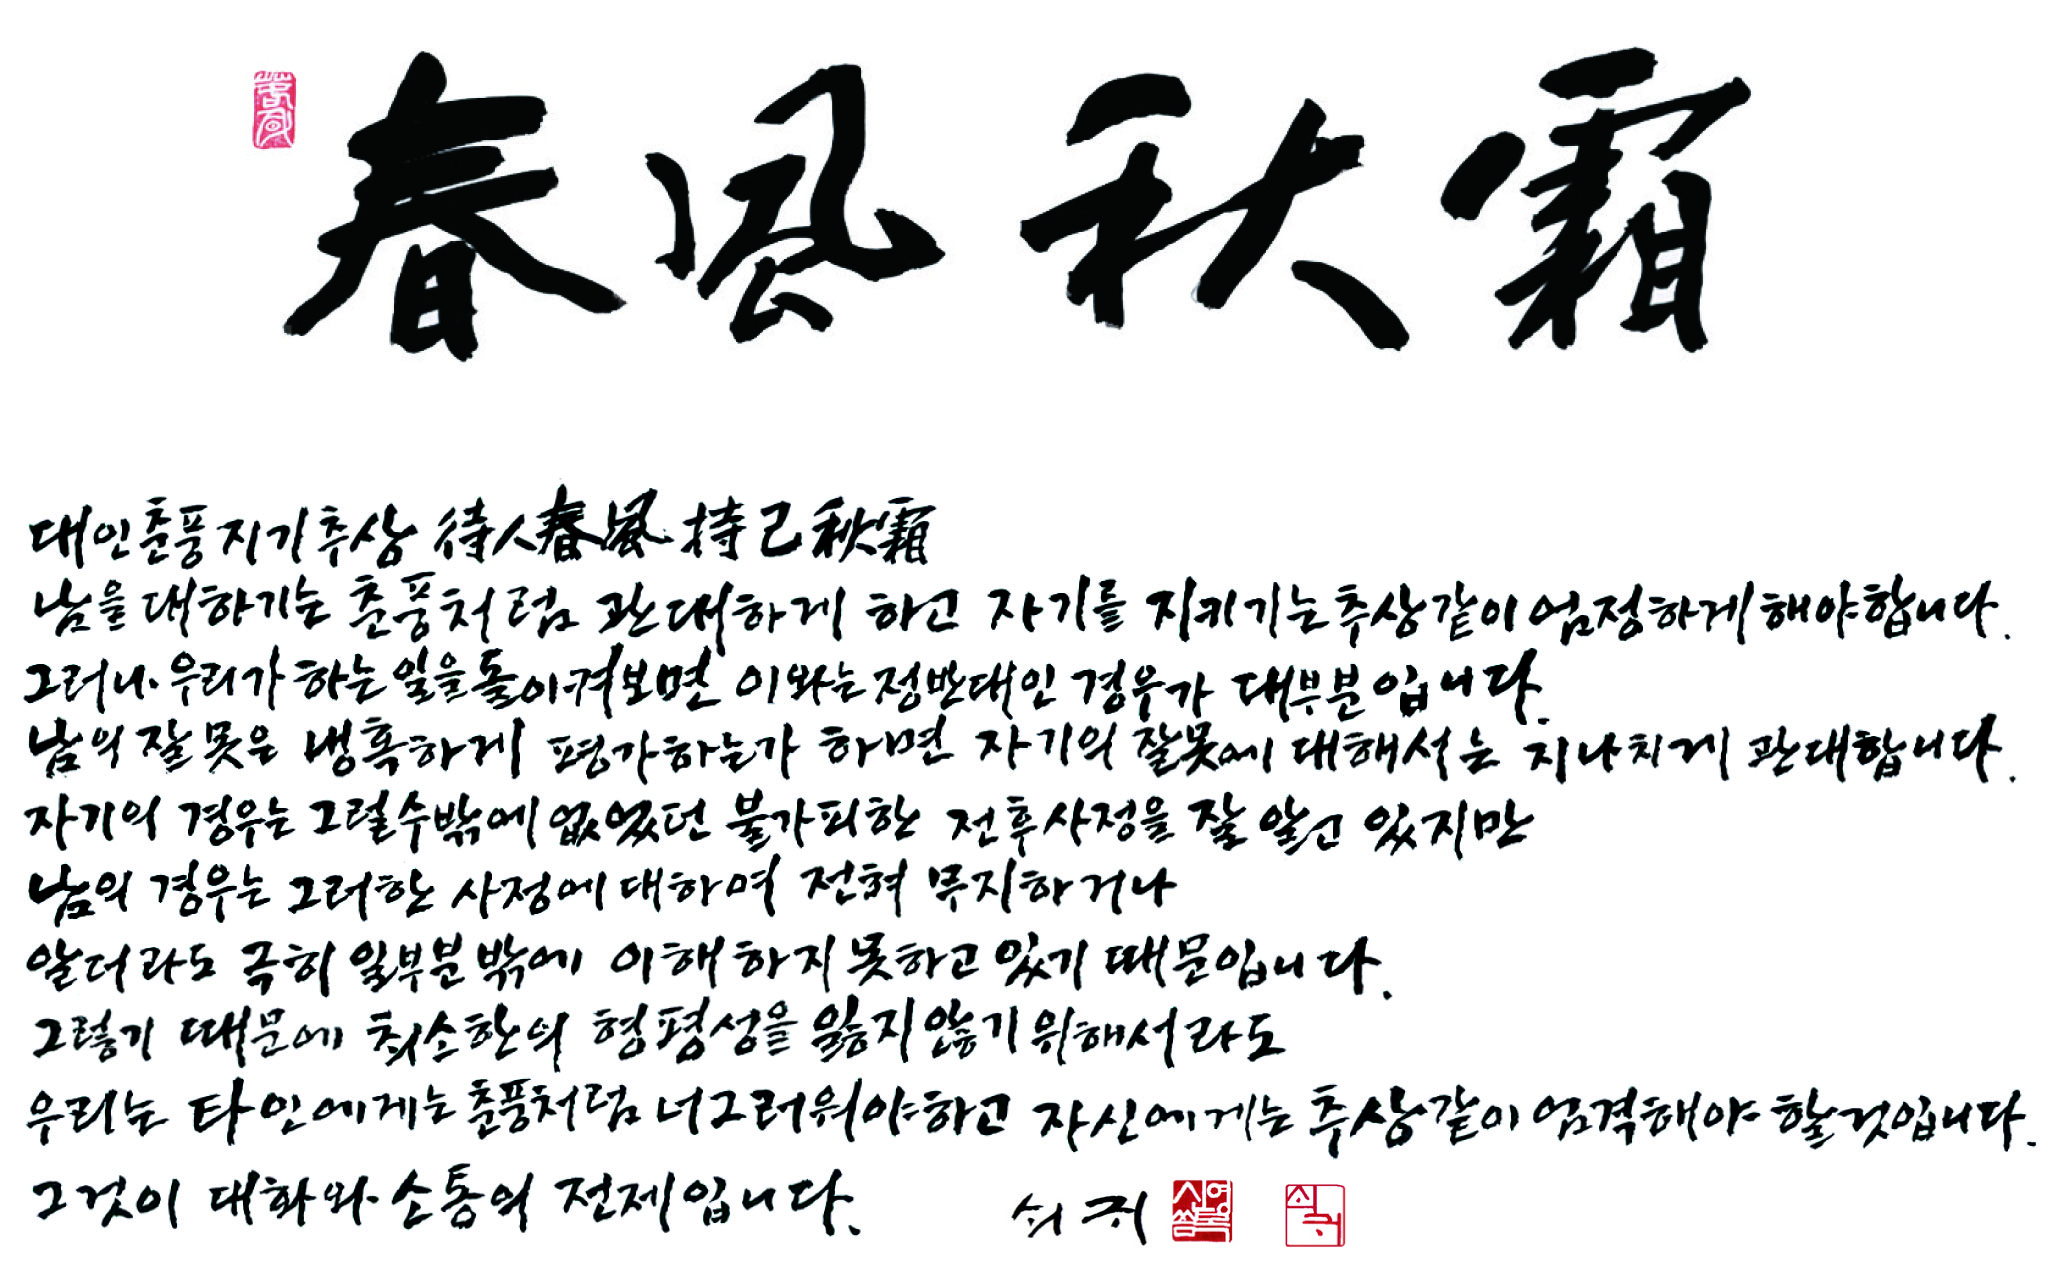 春風秋霜
대인춘풍 지기추상 待人春風 持己秋霜
남을 대하기는 춘풍처럼 관대하게 하고 자기를 지키기는 추상같이 엄정하게 해야 합니다.
그러나 우리가 하는 일을 돌이켜보면 이와는 정반대인 경우가 대부분입니다.
남의 잘못은 냉혹하게 평가하는가 하면 자기의 잘못에 대해서는 지나치게 관대합니다.
자기의 경우는 그럴 수밖에 없었던 불가피한 전후사정을 잘 알고 있지만
남의 경우는 그러한 사정에 대하여 전혀 무지하거나
알더라도 극히 일부분밖에 이해하지 못하고 있기 때문입니다.
그렇기 때문에 최소한의 형평성을 잃지 않기 위해서라도
우리는 타인에게는 춘풍처럼 너그러워야 하고 자신에게는 추상같이 엄격해야 할 것입니다.
그것이 대화와 소통의 전제입니다.
쇠귀 신영복 쇠귀